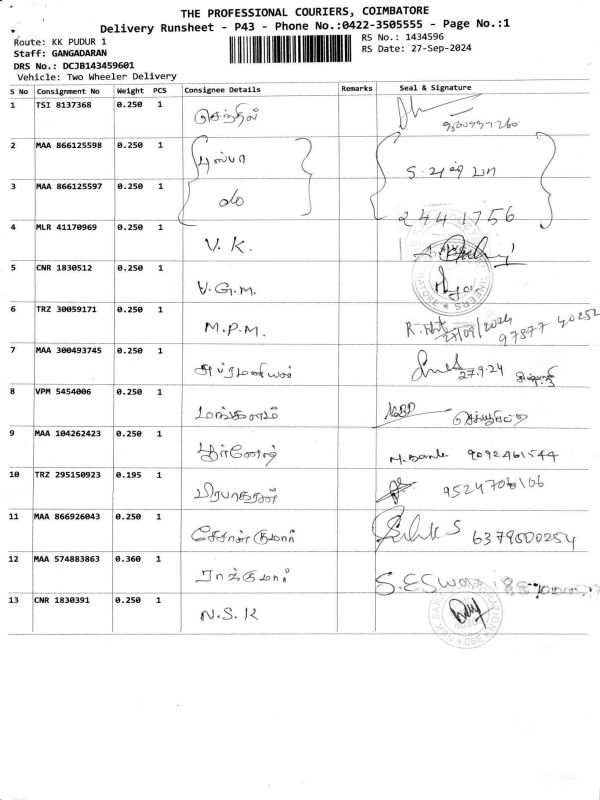 THE PROFESSIONAL COURIERS, COIMBATORE
Delivery Runsheet - P43 - Phone No.:0422-3505555 - Page No.:1
Route: KK PUDUR 1 RS No.: 1434596
Staff: GANGADARAN RS Date: 27-Sep-2024
DRS No.: DCJB143459601
Vehicle: Two Wheeler Delivery
S No Consignment No Weight PCS Consignee Details Remarks Seal & Signature
1 TSI 8137368 0.250 1 செந்தில்
2 MAA 866125598 0.250 1 புஸ்பா
3 MAA 866125597 0.250 1 do
2441756
4 MLR 41170969 0.250 1 V.K.
5 CNR 1830512 0.250 1 V.G.M.
6 TRZ 30059171 0.250 1 M.P.M. 27/09/2024
97877 40252
7 MAA 300493745 0.250 1 27.9.24
8 VPM 5454006 0.250 1 மங்களம்
9 MAA 104262423 0.250 1
10 TRZ 295150923 0.195 1 பிரபாகரன்
11 MAA 866926043 0.250 1 6379500254
12 MAA 574883863 0.360 1 ராக்குமார் S.ESwari
13 CNR 1830391 0.250 1 N.S.K